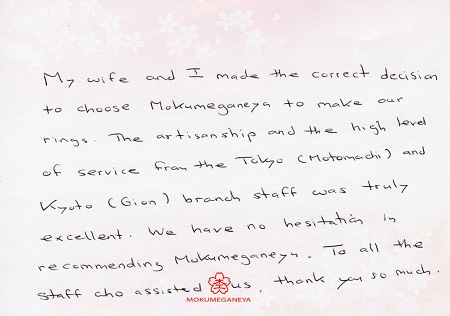 My wife and I made the correct decision
to choose Mokumeganeya to make our
rings. The artisanship and the high level
of service from the Tokyo (Motomachi) and
Kyoto (Gion) branch staff was truly
excellent. We have no hesitation in
recommending Mokumeganeya. To all the
staff who assisted us, thank you so much.
MOKUMEGANEYA